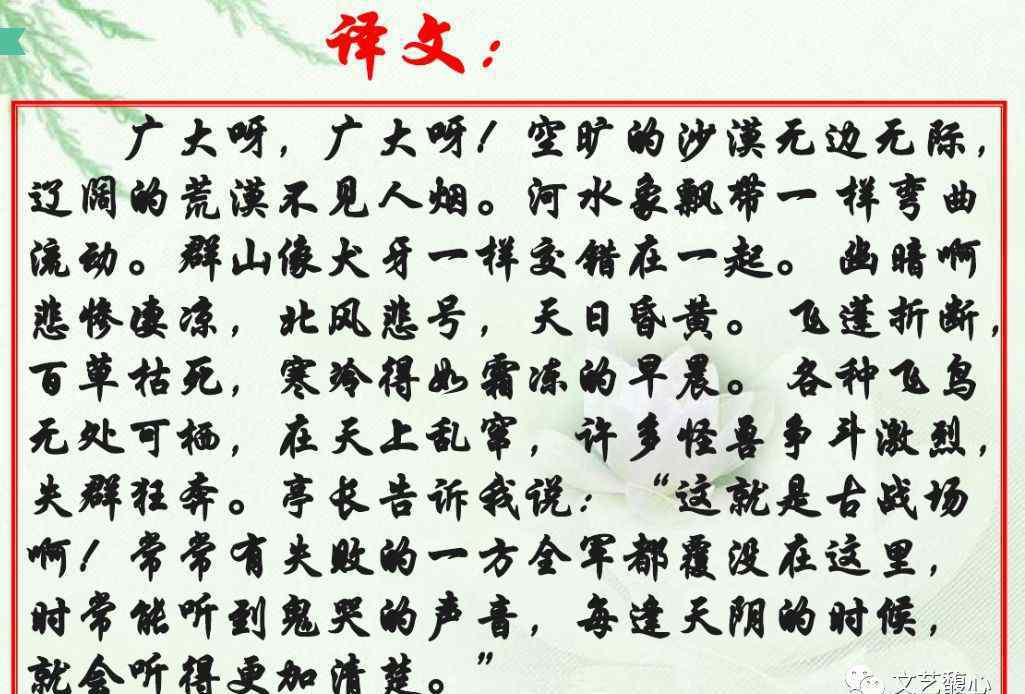 译文：
广大呀，广大呀！空旷的沙漠无边无际，
辽阔的荒漠不见人烟。河水象飘带一样弯曲
流动。群山像犬牙一样交错在一起。幽暗啊
悲惨凄凉，北风悲号，天日昏黄。飞蓬折断，
百草枯死，寒冷得如霜冻的早晨。各种飞鸟
无处可栖，在天上乱窜，许多怪兽争斗激烈，
失群狂奔。亭长告诉我说：“这就是古战场
啊！常常有失败的一方全军都覆没在这里，
时常能听到鬼哭的声音，每逢天阴的时候，
就会听得更加清楚。”
文艺馥心